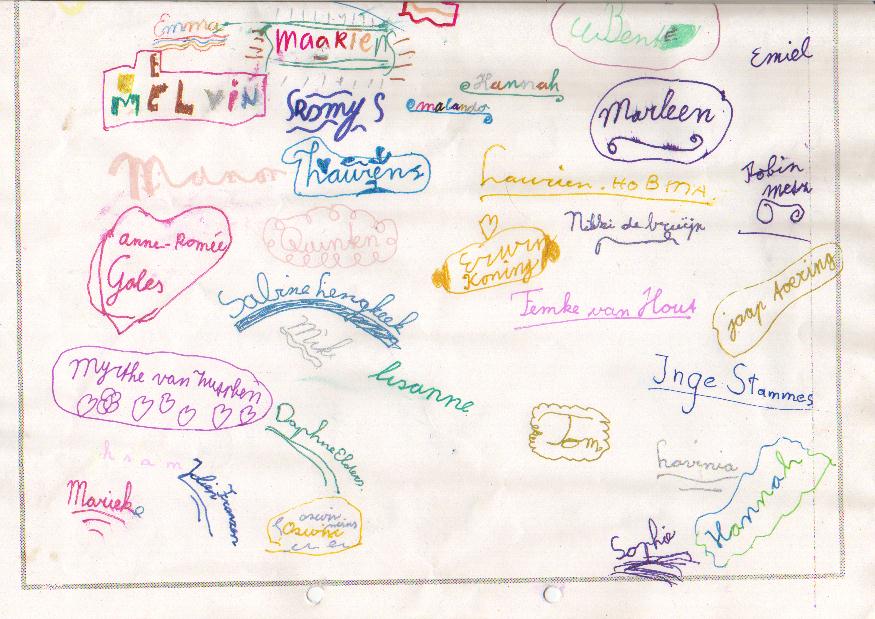 Emma
Maarien
Bente
Emiel
MELVIN
Romy S
malando
Hannah
Marleen
Manon
Laurens
Laurien. HOBMA
Robin
Anne-Romée
Goles
Quinten
Erwin
Koning
Nikki de bruijn
Sabine
Femke van Hout
jaap
Mik
Myrthe van
lisanne
Inge Stammes
Daphne Elders.
Tom
ksam
Lavinia
Marieke
Franzen
Hannah
Sophie